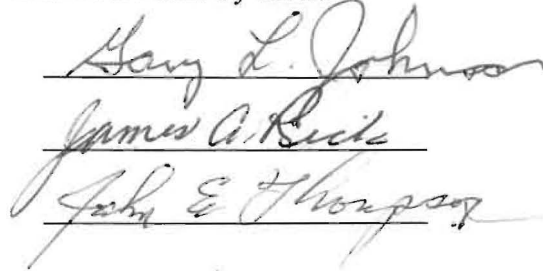 Gary L. Johnson
James A. Beck
John E Thompson